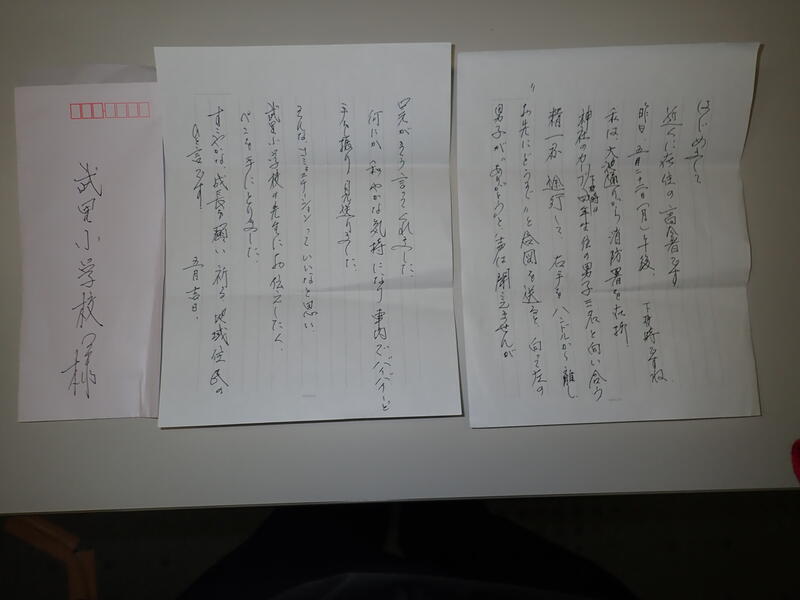 はじめまして
近くに在住の高令者です
昨日 五月二十二日(月)午後 下校時ですね
私は、大池通りから消防署を右折、
神社のカーブ 下校時の 四年生位の男子三名と向い合う
徐行して 右手をハンドルから離し、
"お先にどうぞ"と合図を送ると、向って左の
男子が"ありがとう"と声は聞えませんが
口元がそう言ってくれました。
何だか 和やかな気持になり 車内でバイバイーと
手を振り見送りました。
そんなコミュニケーションっていいなと思い
武里小学校の先生にお伝えしたく、
ペンを手にとりました。
すこやかな成長を願い祈る 地域住民の
ひと言です! 五月吉日.
武里小学校 様